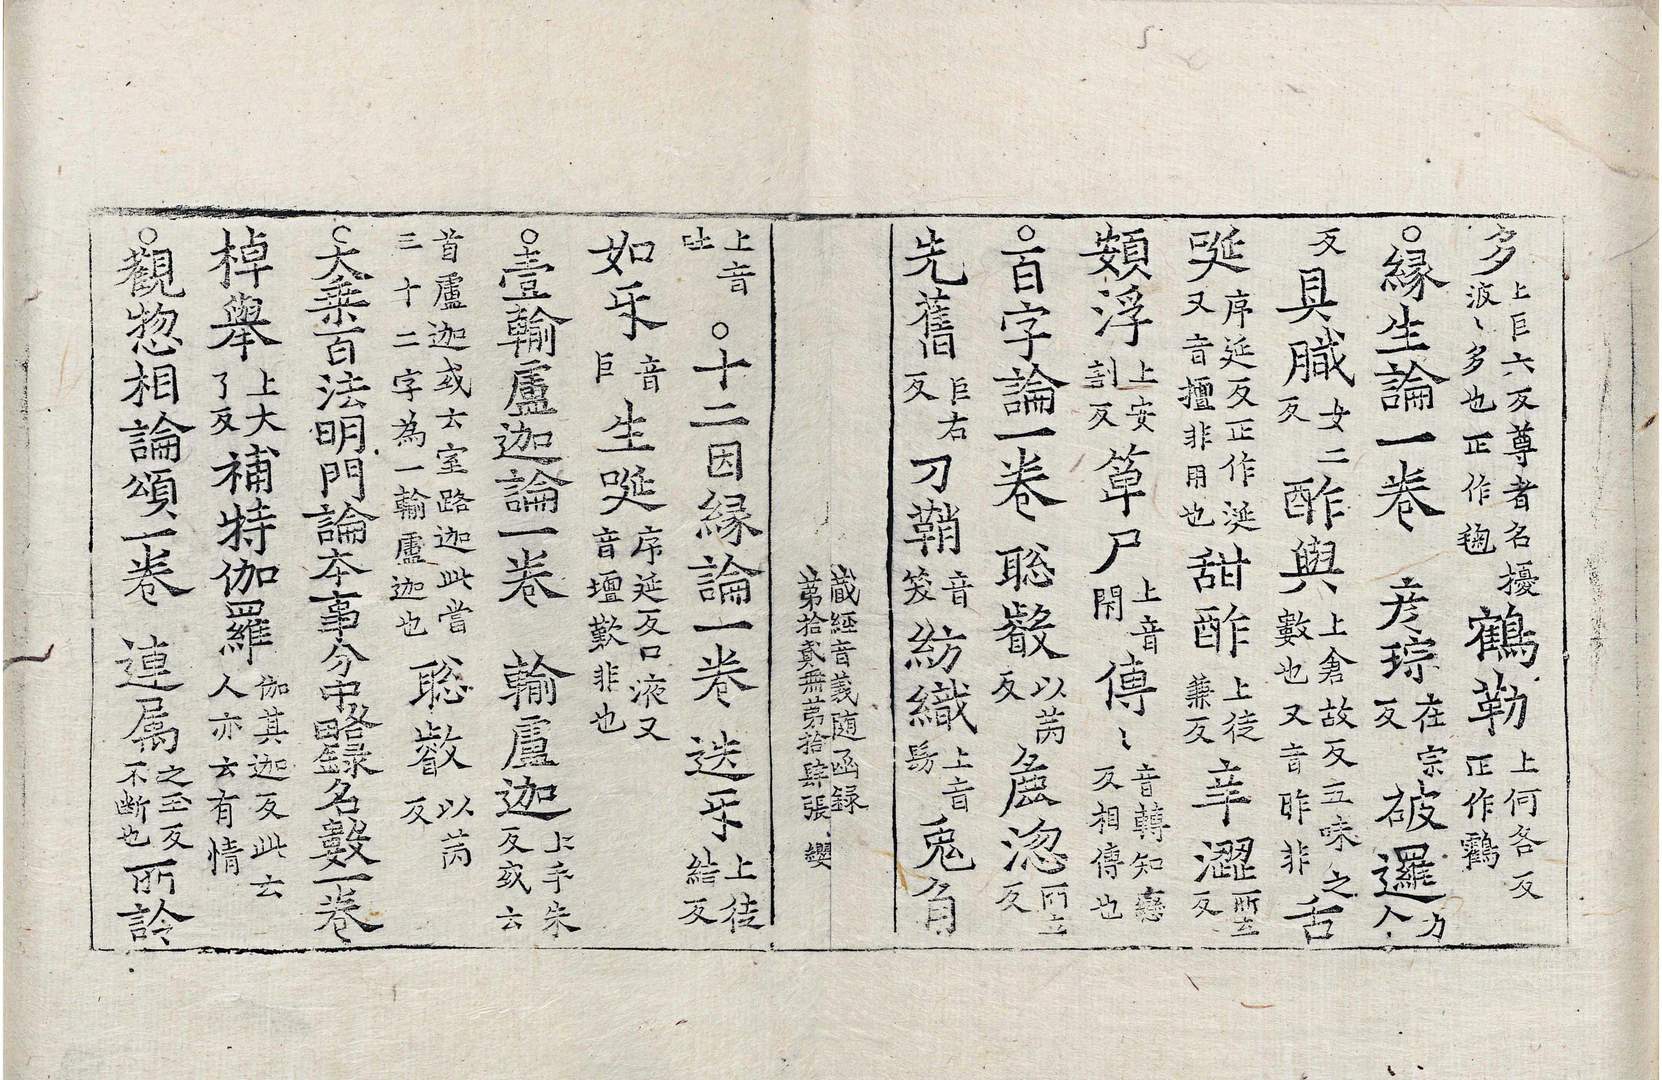 多上巨六反尊者名擾波〻多也正作䞠鶴勒上何各反正作鸖
○縁生論一卷　彦琮在宗反　破邏力个
反具膱女二反酢與上倉故反五味之數也又音昨非舌
唌序延反正作涎又音擅非用也甜酢上徒兼反辛澀所立反
頞浮上安割反箪尸上音閑傳〻音轉知戀反相傳也
○百字論一卷　聡叡以芮反麁㳷所立反
先舊巨右反刀鞘音笑紡織上音髣兎角
藏經音義随函録
苐拾貳無苐拾肆張　纓
上音吐○十二因縁論一卷　迭牙上徒結反
如牙音巨生唌序延反口液又音壇歎非也
○壹輸盧迦論一卷　輸盧迦上手朱反或云
首盧迦或云室路迦此嘗三十二字為一輸盧迦也聡叡以芮反
○大乗百法明門論本事分中略録名數一卷
棹舉上大了反補特伽羅伽其迦反此云人亦云有情
○觀揔相論頌一卷　連属之玉反不断也所詅